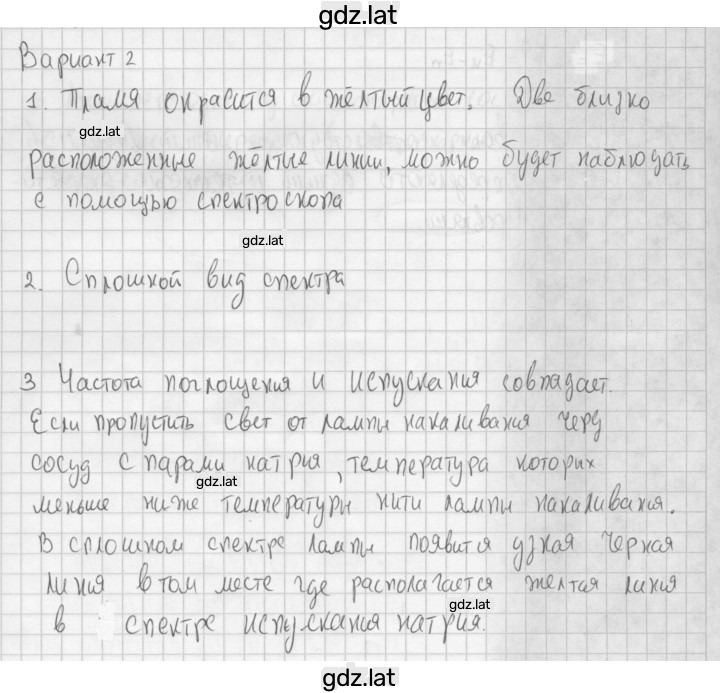 gdz.lat
Вариант 2
1. Пламя окрасится в жёлтый цвет. Две близко
gdz.lat
расположенные жёлтые линии, можно будет наблюдать
с помощью спектроскопа
gdz.lat
2. Сплошной вид спектра
3 Частота поглощения и испускания совпадает.
Если пропустить свет от лампы накаливания черз
сосуд с парами натрия, температура которих
gdz.lat
меньше ниже температуры нити лампы накаливания.
В сплошном спектре лампы появится узкая черная
линия в том месте где располагается желтая линия
gdz.lat
в спектре испускания натрия.
gdz.lat